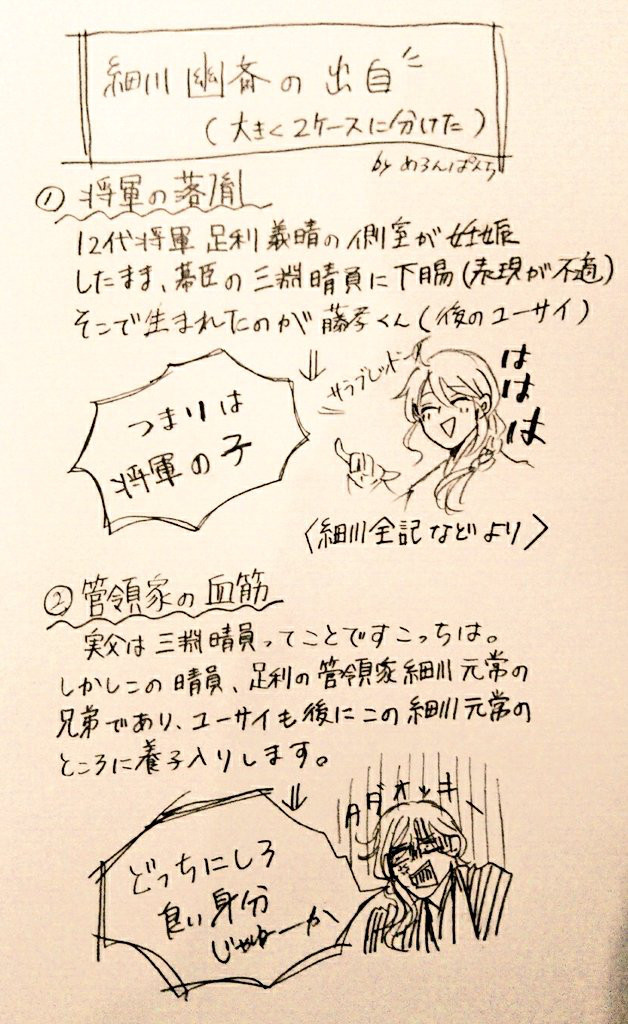 細川幽斎の出自
(大きく2ケースに分けた)
by めろんぱんち
① 将軍の落胤
12代将軍 足利義晴の側室が妊娠
したまま、幕臣の三淵晴員に下賜(表現が不適)
そこで生まれたのが 藤孝くん(後のユーサイ)
つまりは
将軍の子
サラブレッドー
ははは
〈細川全記などより〉
② 管領家の血筋
実父は三淵晴員ってことですこっちは。
しかしこの晴員、足利の管領家細川元常の
兄弟であり、ユーサイも後にこの細川元常の
ところに養子入りします。
どっちにしろ
良い身分
じゃねーか
タダオッキー